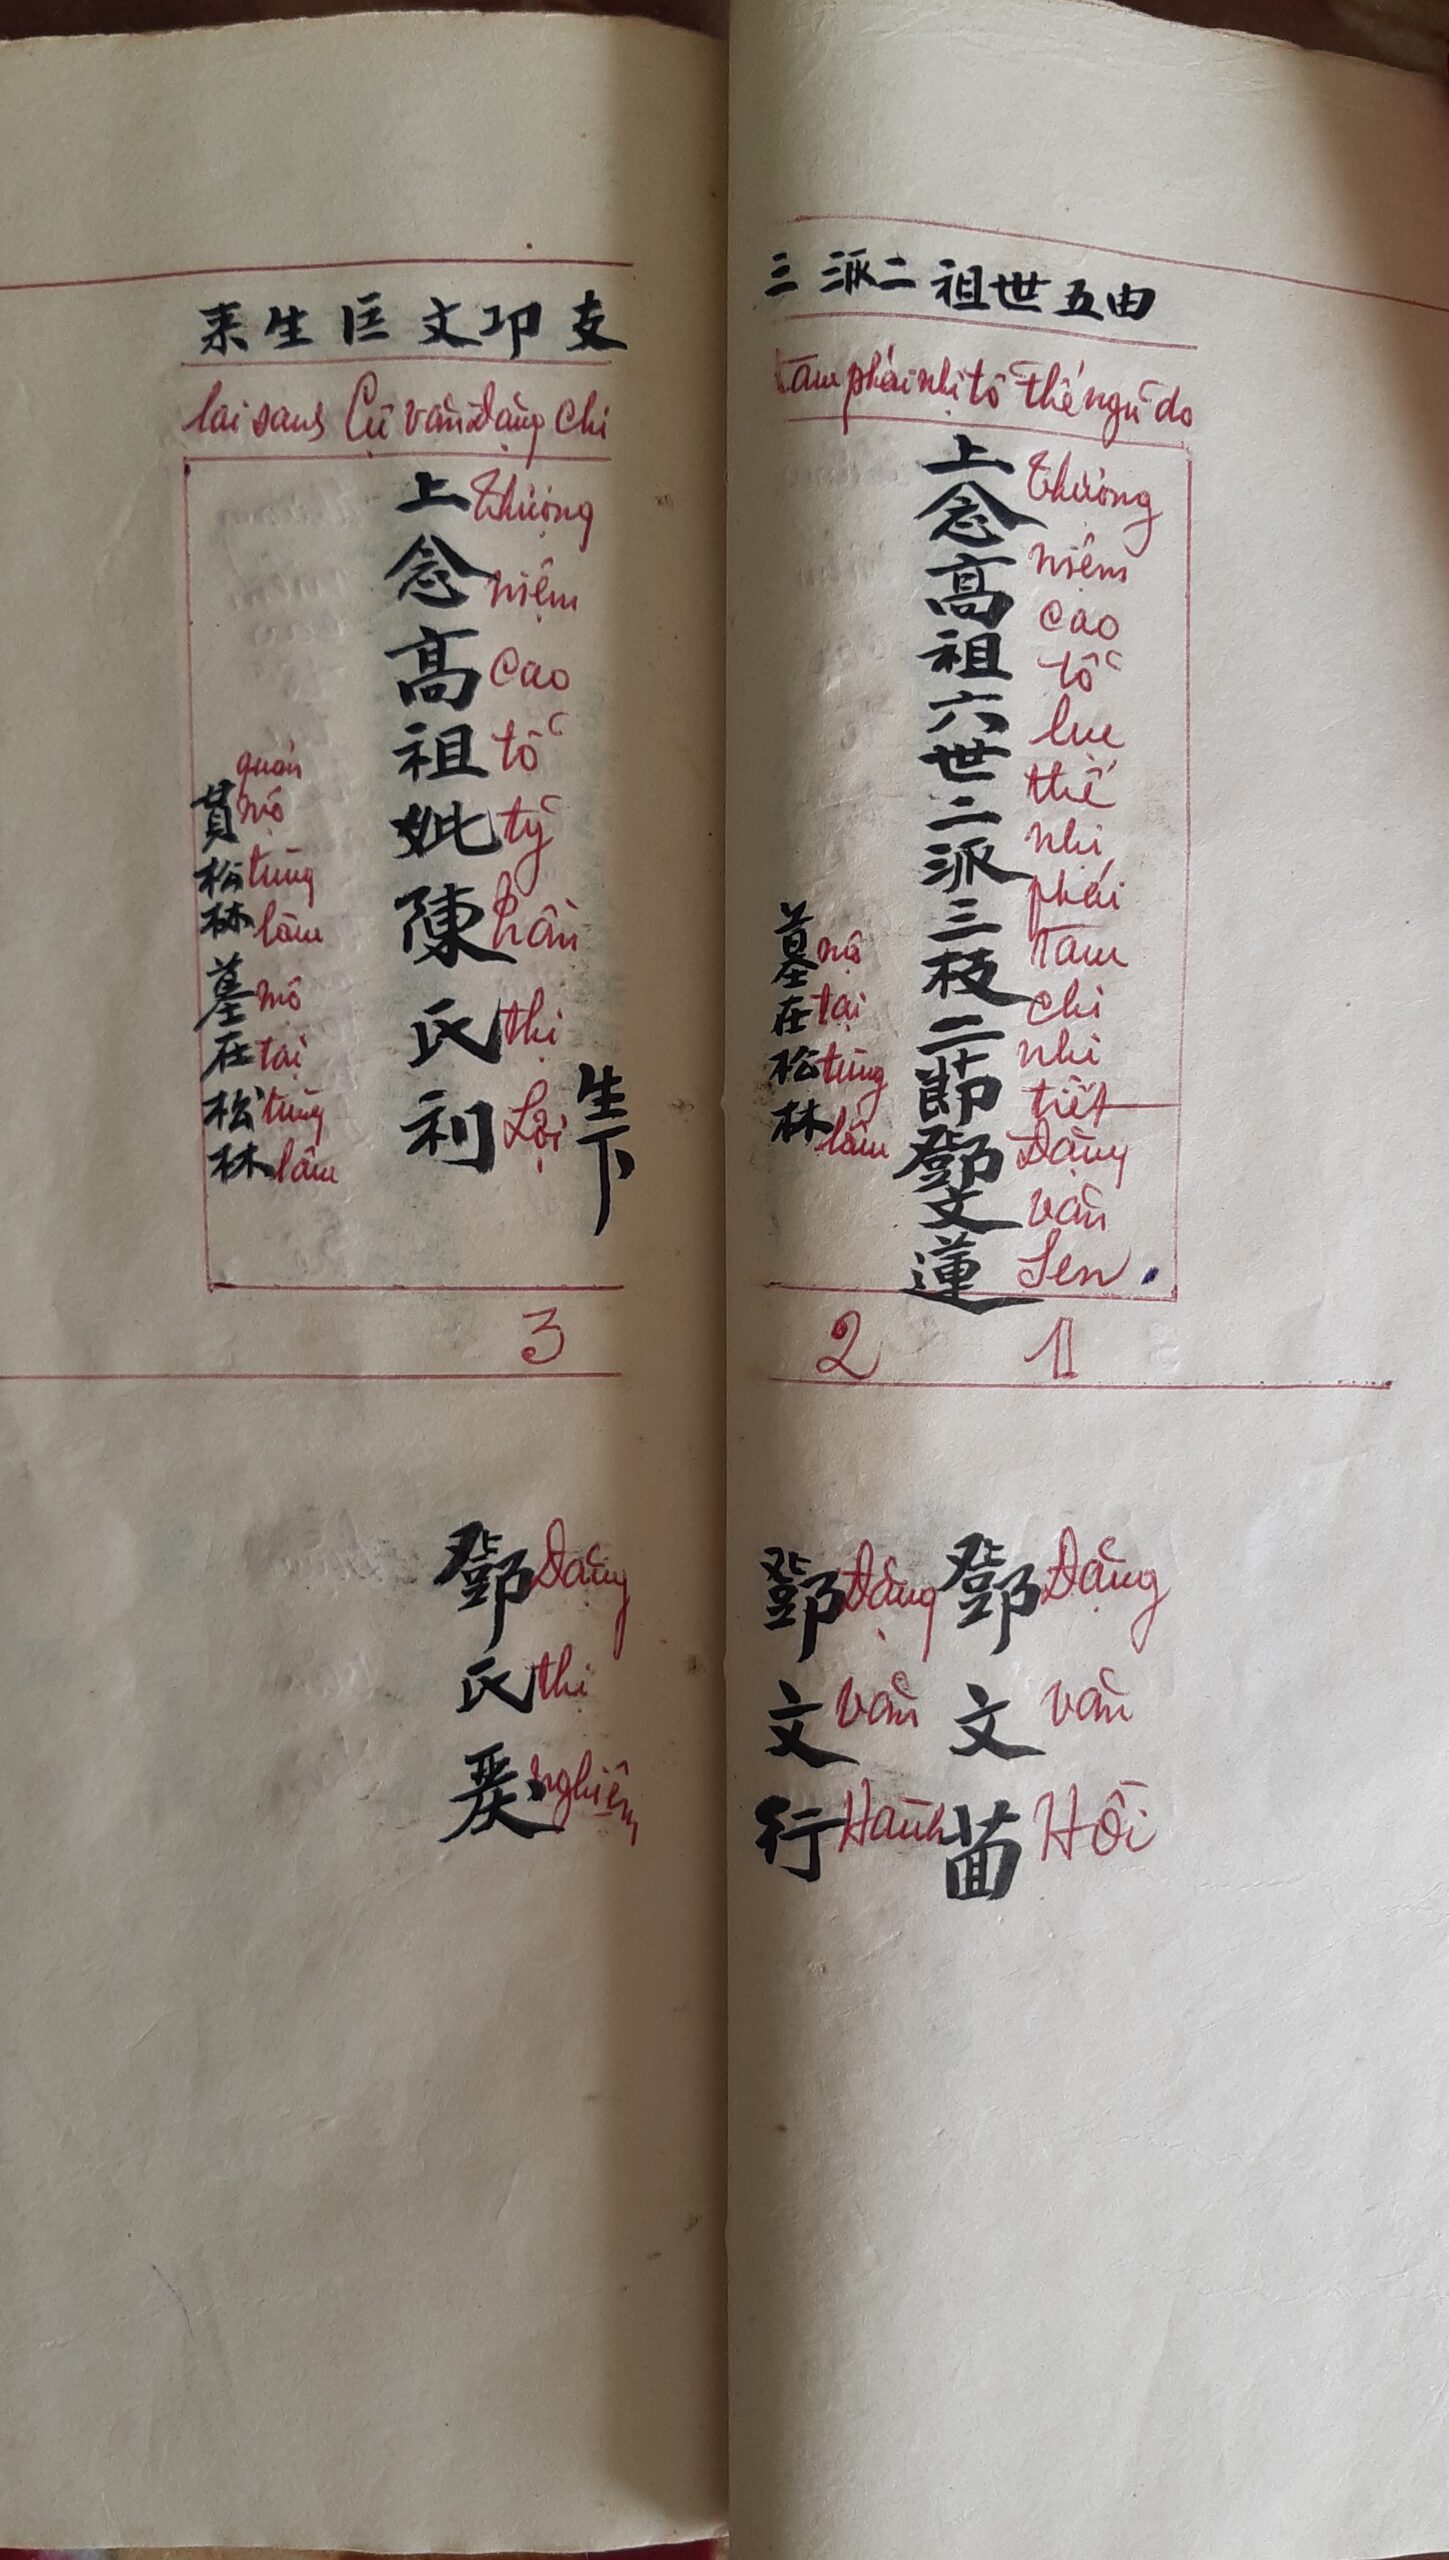 由五世祖二派三
tam phái nhị tổ thế ngũ do
上念高祖六世二派三枝二節鄧文蓮
thượng niệm cao tổ lục thế nhị phái tam chi nhị tiết Đặng văn Sen.
墓在松林
mộ tại tùng lâm
1
2
鄧文茴
Đặng văn Hồi
鄧文行
Đặng văn Hành
支卭文匡生来
lai sanh Cụ văn Đặng chi
生下
上念高祖妣陳氏利
thượng niệm cao tổ tỷ trần thị Lợi
貫松林墓在松林
quán mộ tùng lâm mộ tại tùng lâm
3
鄧氏
Đặng thị nghiêm